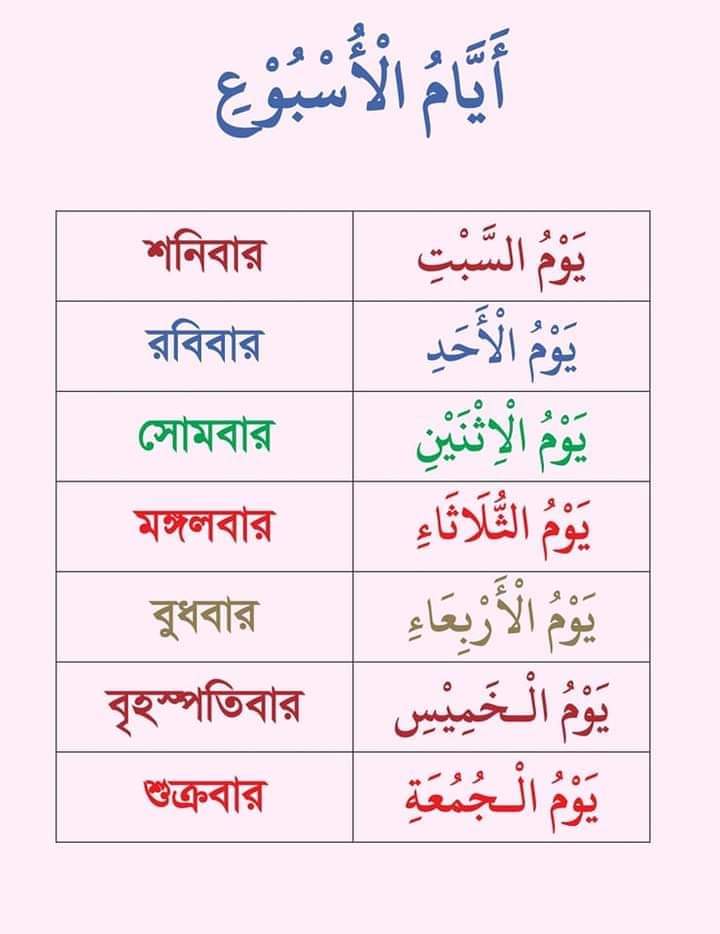 أَيَّامُ الْأُسْبُوْعِ
শনিবার يَوْمُ السَّبْتِ
রবিবার يَوْمُ الْأَحَدِ
সোমবার يَوْمُ الْاِثْنَيْنِ
মঙ্গলবার يَوْمُ الثُّلَاثَاءِ
বুধবার يَوْمُ الْأَرْبِعَاءِ
বৃহস্পতিবার يَوْمُ الْـخَمِيْسِ
শুক্রবার يَوْمُ الْـجُمُعَةِ